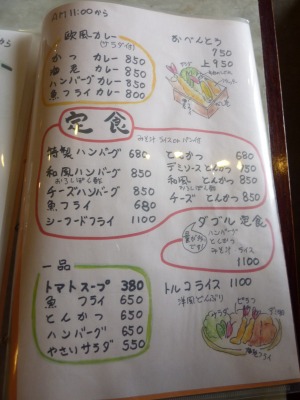 AM 11:00から
欧風カレー
(サラダ付)
かつ カレー 850
海老 カレー 850
ハンバーグカレー 850
魚フライ カレー 800
おべんとう
750
上 950
定食
みそ汁 ライス or パン付
特製ハンバーグ 680
和風ハンバーグ 850
おろしぽん酢
チーズハンバーグ 850
魚フライ 680
シーフードフライ 1100
とんかつ 680
デミソースとんかつ 750
和風とんかつ 850
おろしぽん酢
チーズ とんかつ 850
ダブル定食
ハンバーグ
とんかつ
みそ汁 ライス
1100
一品
トマトスープ 380
魚 フライ 650
とんかつ 650
ハンバーグ 650
やさいサラダ 550
トルコライス 1100
洋風どんぶり
ピラフ
サラダ
海老フライ
から